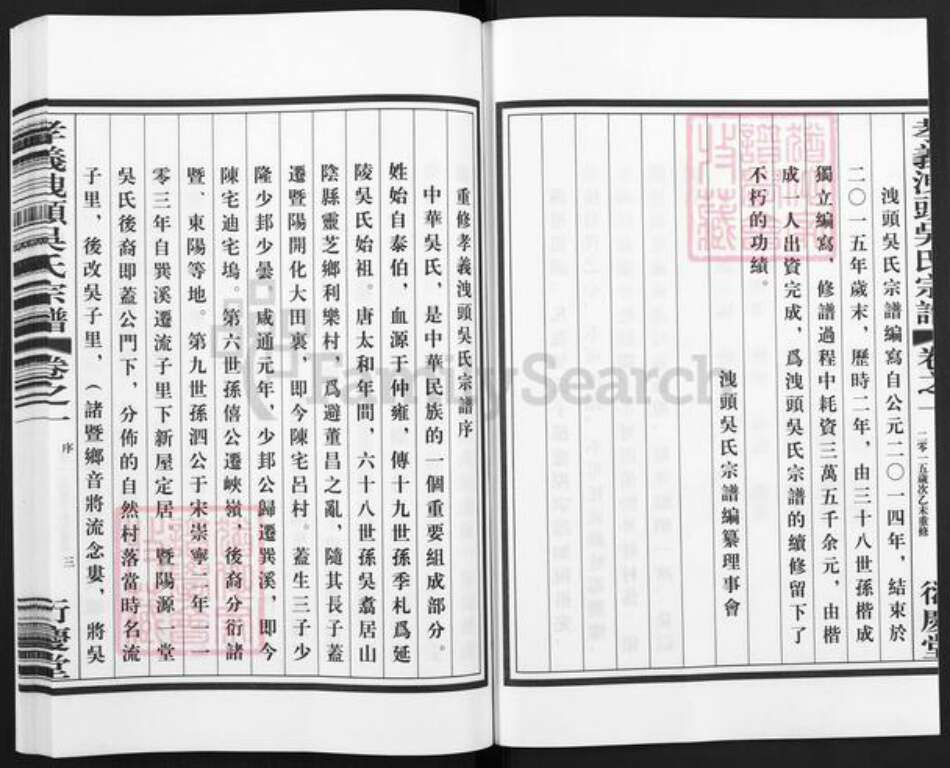 孝義洩頭吳氏宗譜 卷之一 二零一五歲次乙未重修 衍慶堂
洩頭吳氏宗譜編寫自公元二〇一四年，結束於
二〇一五年歲末，歷時二年，由三十八世孫楷成
獨立編寫，修譜過程中耗資三萬五千余元，由楷
成一人出資完成，爲洩頭吳氏宗譜的續修留下了
不朽的功績。
洩頭吳氏宗譜編纂理事會
重修孝義洩頭吳氏宗譜序
中華吳氏，是中華民族的一個重要組成部分。
姓始自泰伯，血源于仲雍，傳十九世孫季札爲延
陵吳氏始祖。唐太和年間，六十八世孫吳翥居山
陰縣靈芝鄉利樂村，爲避董昌之亂，隨其長子蓋
遷暨陽開化大田裏，即今陳宅呂村。蓋生三子少
隆少邽少曇，咸通元年，少邽公歸遷巽溪，即今
陳宅迪宅塢。第六世孫僖公遷峽嶺，後裔分衍諸
暨、東陽等地。第九世孫泗公于宋崇寧二年一一
零三年自巽溪遷流子里下新屋定居，暨陽源一堂
吳氏後裔即蓋公門下，分佈的自然村落當時名流
子里，後改吳子里，（諸暨鄉音將流念婁，將吳
孝義洩頭吳氏宗譜 卷之一 序 三 衍慶堂
FamilySearch